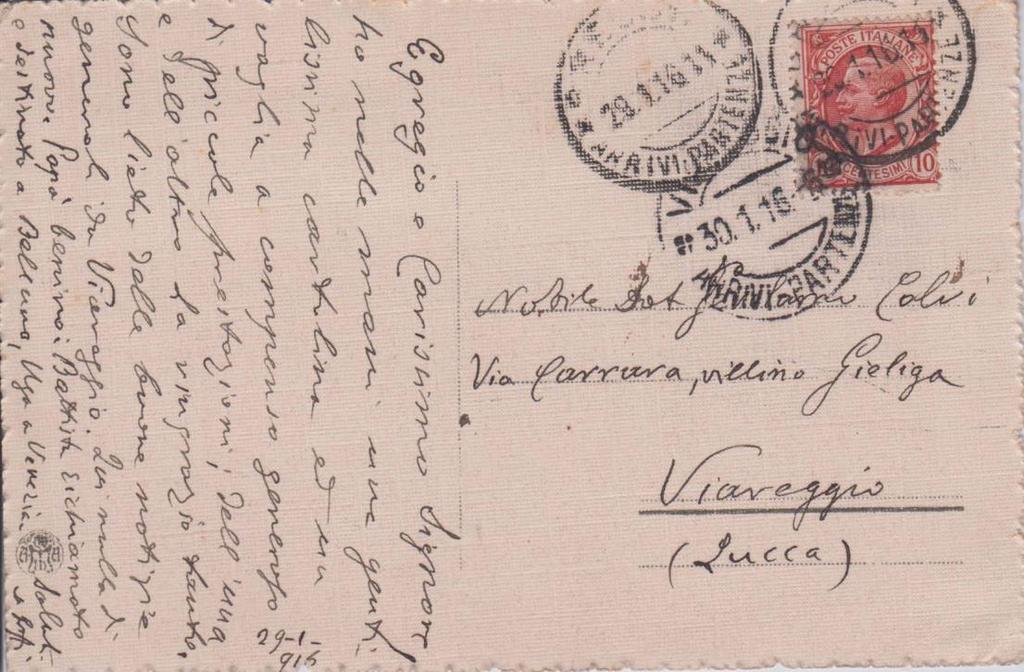 Egregio e Carissimo Signore
ho nelle mani una genti-
lissima cartolina ed un
vaglia a compenso generoso
di piccole prestazioni; dell'una
e dell'altro La ringrazio tanto.
Sono lieto delle buone notizie
generali da Viareggio. Qui nulla di
nuovo. Papà benino: Battista richiamato
e destinato a Belluno, Ugo a Venezia. Saluti
29-1-
916
29.1.16.11
ARRIVI.PARTENZE
POSTE ITALIANE
CENTESIMI 10
ARRIVI.PARTENZE
30.1.16
ARRIVI.PARTENZE
Nobile Dot Calvi
Via Carrara, villino Gieliga
Viareggio
(Lucca)